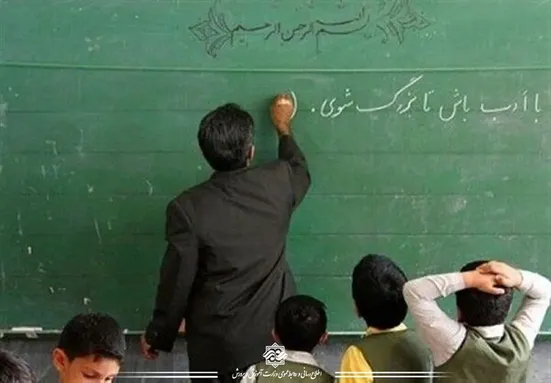 بسم الله الرحمن الرحیم
با ادب باش تا بزرگ شوی. (
اطلاع رسانی و روابط عمومی وزارت آموزش و پرورش